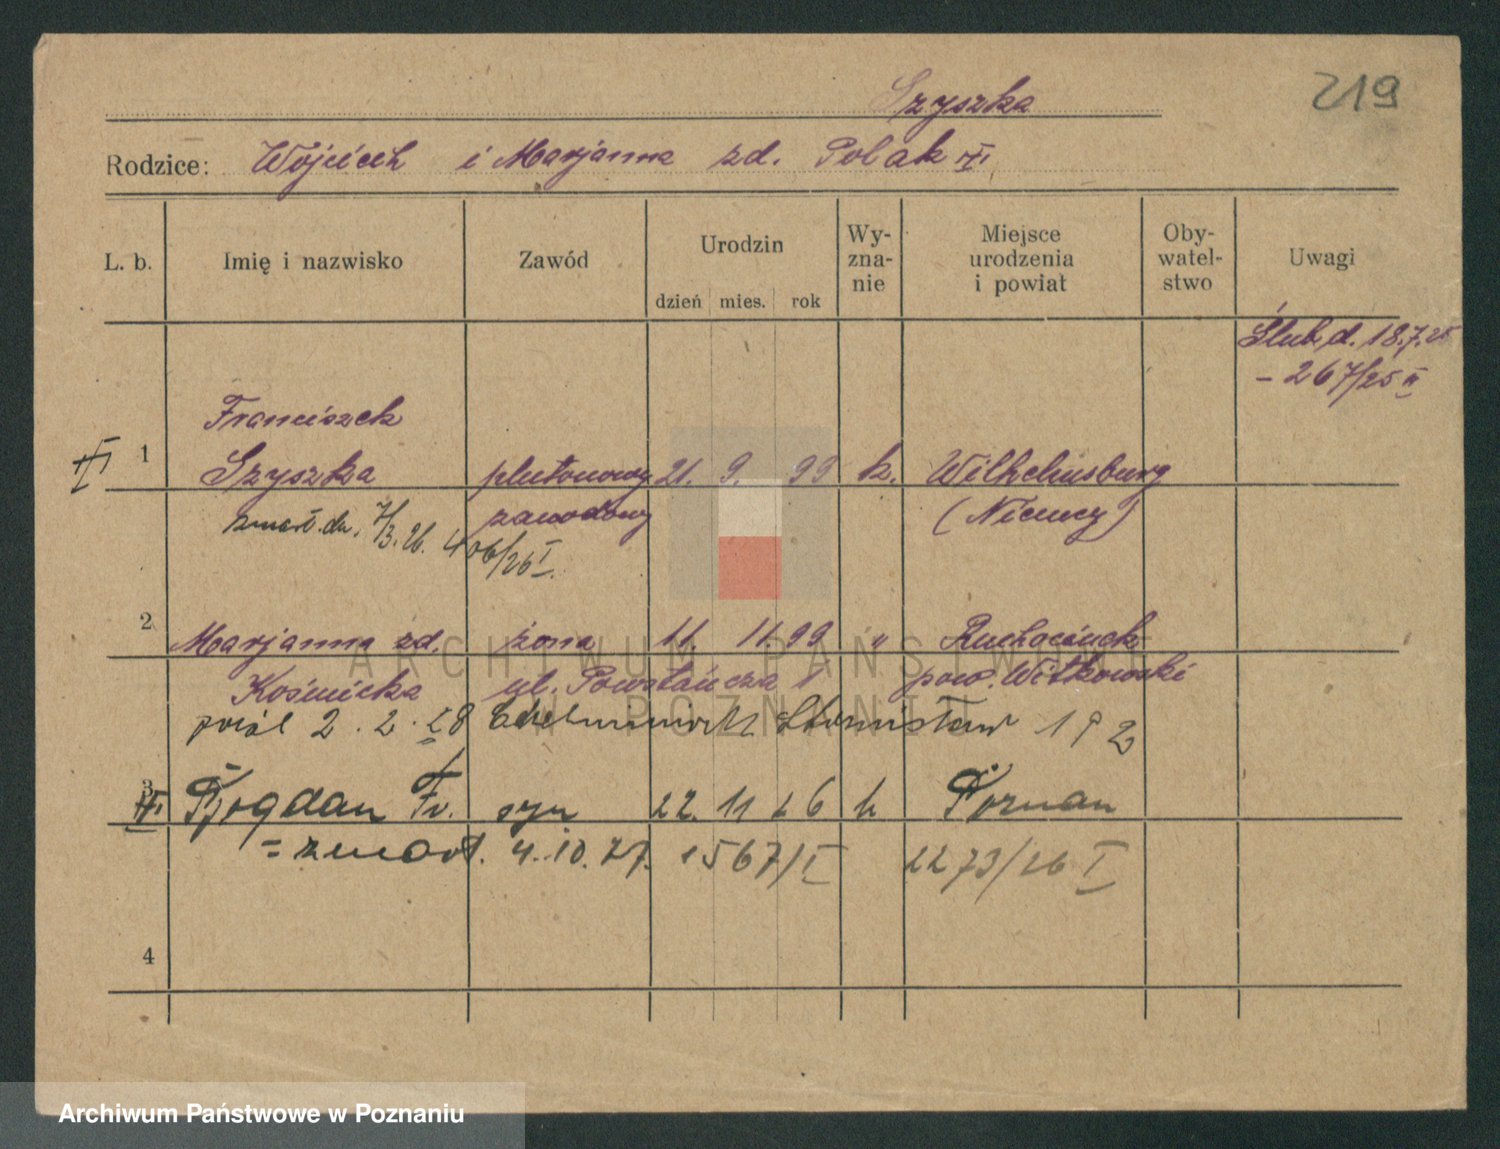 219
Szyszka
Rodzice: Wojciech i Marjanna zd. Polak
L. b. Imię i nazwisko Zawód Urodzin dzień mies. rok Wy-zna-nie Miejsce urodzenia i powiat Oby-watel-stwo Uwagi
Ślub d. 18.7.25
– 267/25 III
Franciszek
1 Szyszka plutonowy 21. 9. 99 k. Wilhelmsburg
zawodowy (Niemcy)
zmarł dn. 7/3.26. 406/26 I.
2 Marjanna zd. żona 11. 11. 99 " Ruchocinek
Kośmicka ul. Powstańcza 1 pow. Witkowski
pośl 2.2.28 Stanisław 192
3 Bogdan Fr. syn 22. 11 26 k Poznań
= zmarł. 4.10.27. 1567/I 2273/26 I
4
ARCHIWUM PAŃSTWOWE
W POZNANIU
Archiwum Państwowe w Poznaniu